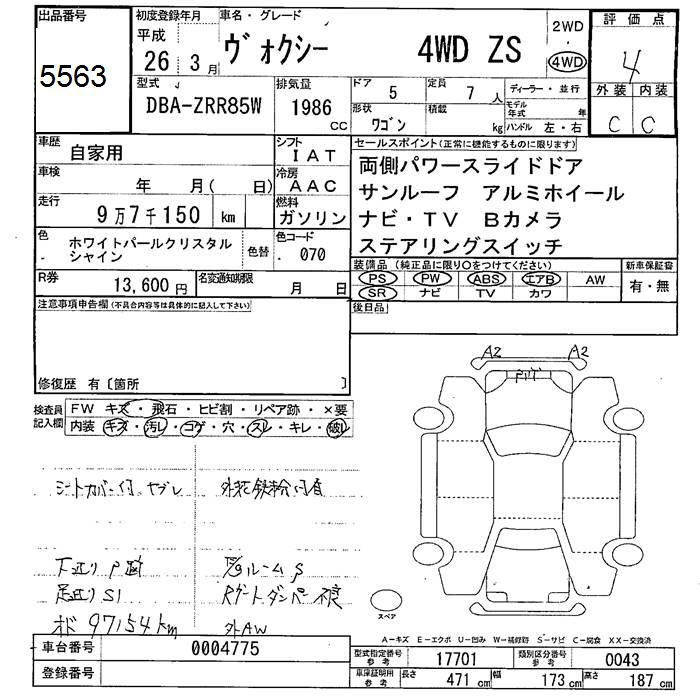 出品番号 初度登録年月 車名・グレード 2WD 評価点
5563 平成 26 3月 ヴォクシー 4WD ZS ・ 4WD 4
型式 DBA-ZRR85W 排気量 1986 CC ドア 5 定員 7 人 ディーラー・並行 外装 内装
形状 ワゴン 積載 kg モデル年式 年 ハンドル 左・右 C C
車歴 自家用 シフト IAT セールスポイント(正常に機能するものに限ります)
車検 年 月( 日) 冷房 AAC 両側パワースライドドア
走行 9万7千150 km 燃料 ガソリン サンルーフ アルミホイール
ナビ・TV Bカメラ
色 ホワイトパールクリスタル シャイン 色替 色コード 070 ステアリングスイッチ
R券 13,600円 名変通知期限 月 日 装備品(純正品に限り○をつけてください) 新車保証書
PS PW ABS エアB AW 有・無
SR ナビ TV カワ
注意事項申告欄(不具合内容等は具体的に記入して下さい) 後日品
修復歴 有〔箇所 〕
A2 A2
検査員記入欄 FW キズ・飛石・ヒビ割・リペア跡・×要
内装 キズ・汚レ・コゲ・穴・スレ・キレ・破レ
シートカバー付 ヤブレ 外装鉄粉付着
下廻りP跡 ルームS
足廻りS1 Rゲートダンパー不良
オド 97154km 外AW
スペア
A-キズ E-エクボ U-凹み W-補修跡 S-サビ C-腐食 XX-交換済
車台番号 0004775 型式指定番号 参考 17701 類別区分番号 参考 0043
登録番号 車庫証明用 参考 長さ 471 cm 幅 173 cm 高さ 187 cm